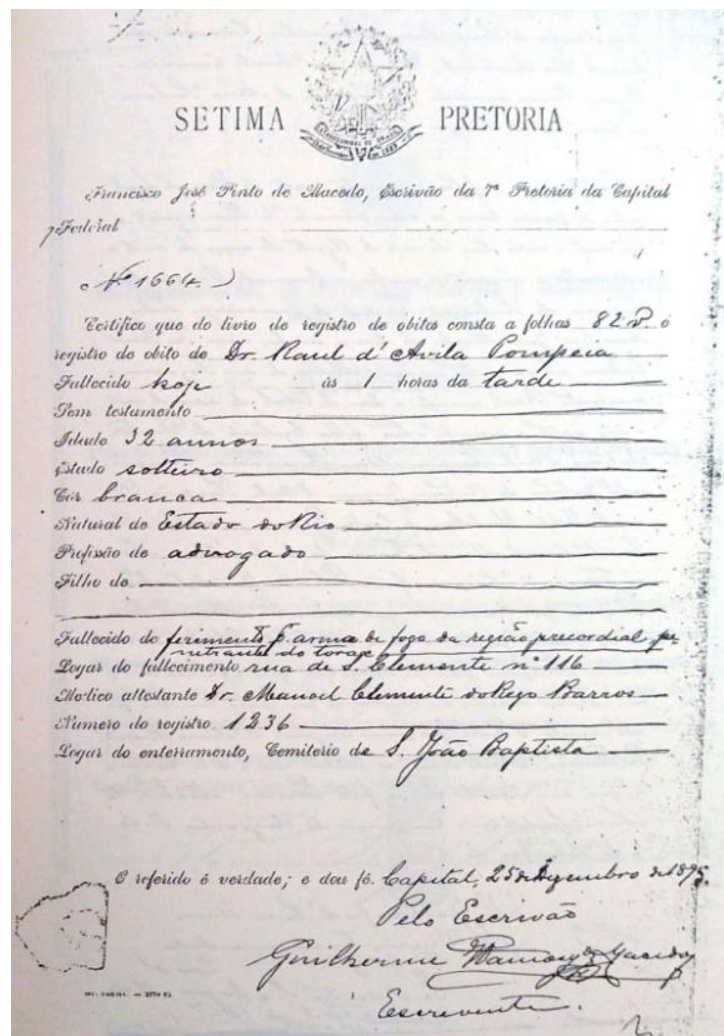 SETIMA PRETORIA
Francisco José Pinto de Macedo, Escrivão da 7ª Pretoria da Capital
Federal
Nº 1664.
Certifico que do livro de registro de obitos consta a folhas 82 v. o
registro do obito de Dr. Raul d'Avila Pompeia
Fallecido hoje ás 1 horas da tarde
Sem testamento
Idade 32 annos
Estado solteiro
Côr branca
Natural do Estado do Rio
Profissão de advogado
Filho de
Fallecido de ferimento p. arma de fogo da região precordial pe-
netrante do torax
Logar do fallecimento rua de S. Clemente nº 116
Medico attestante Dr. Manoel Clemente do Rego Barros
Numero do registro 1236
Logar do enterramento, Cemiterio de S. João Baptista
O referido é verdade; e dou fé. Capital, 25 de Dezembro de 1895.
Pelo Escrivão
Guilherme de Macedo
Escrevente.